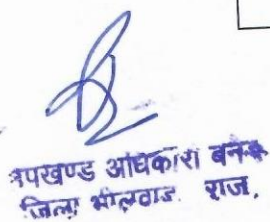 उपखण्ड अधिकारी बनेड़ा
जिला भीलवाड़ा राज.